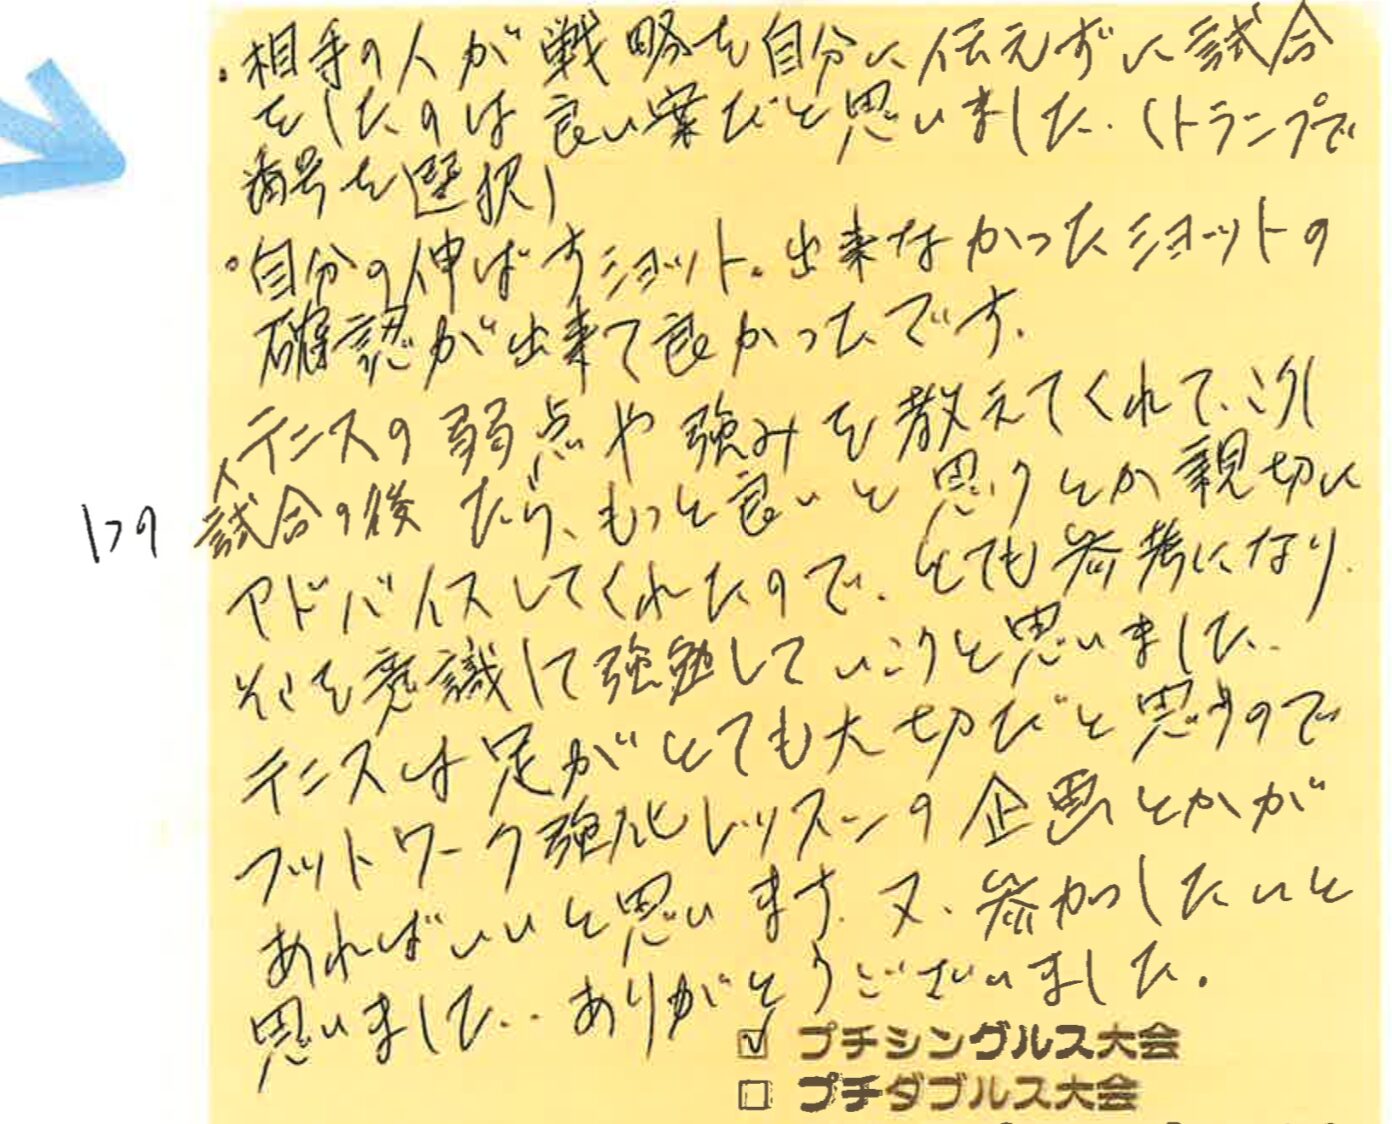 ・相手の人が戦略を自分に伝えずに試合
をしたのは良い案だと思いました.(トランプで
番号を選択)
・自分の伸ばすショット。出来なかったショットの
確認が出来て良かったです.
テニスの弱点や強みを教えてくれて、こうし
試合の後 たら、もっと良いと思うとか親切に
アドバイスしてくれたので、とても参考になり.
そこを意識して強勉していこうと思いました.
テニスは足がとても大切だと思うので
フットワーク強化レッスンの企画とかが
あればいいと思います.又、参加したいと
思いました.. ありがとうございました.
☑ プチシングルス大会
☐ プチダブルス大会